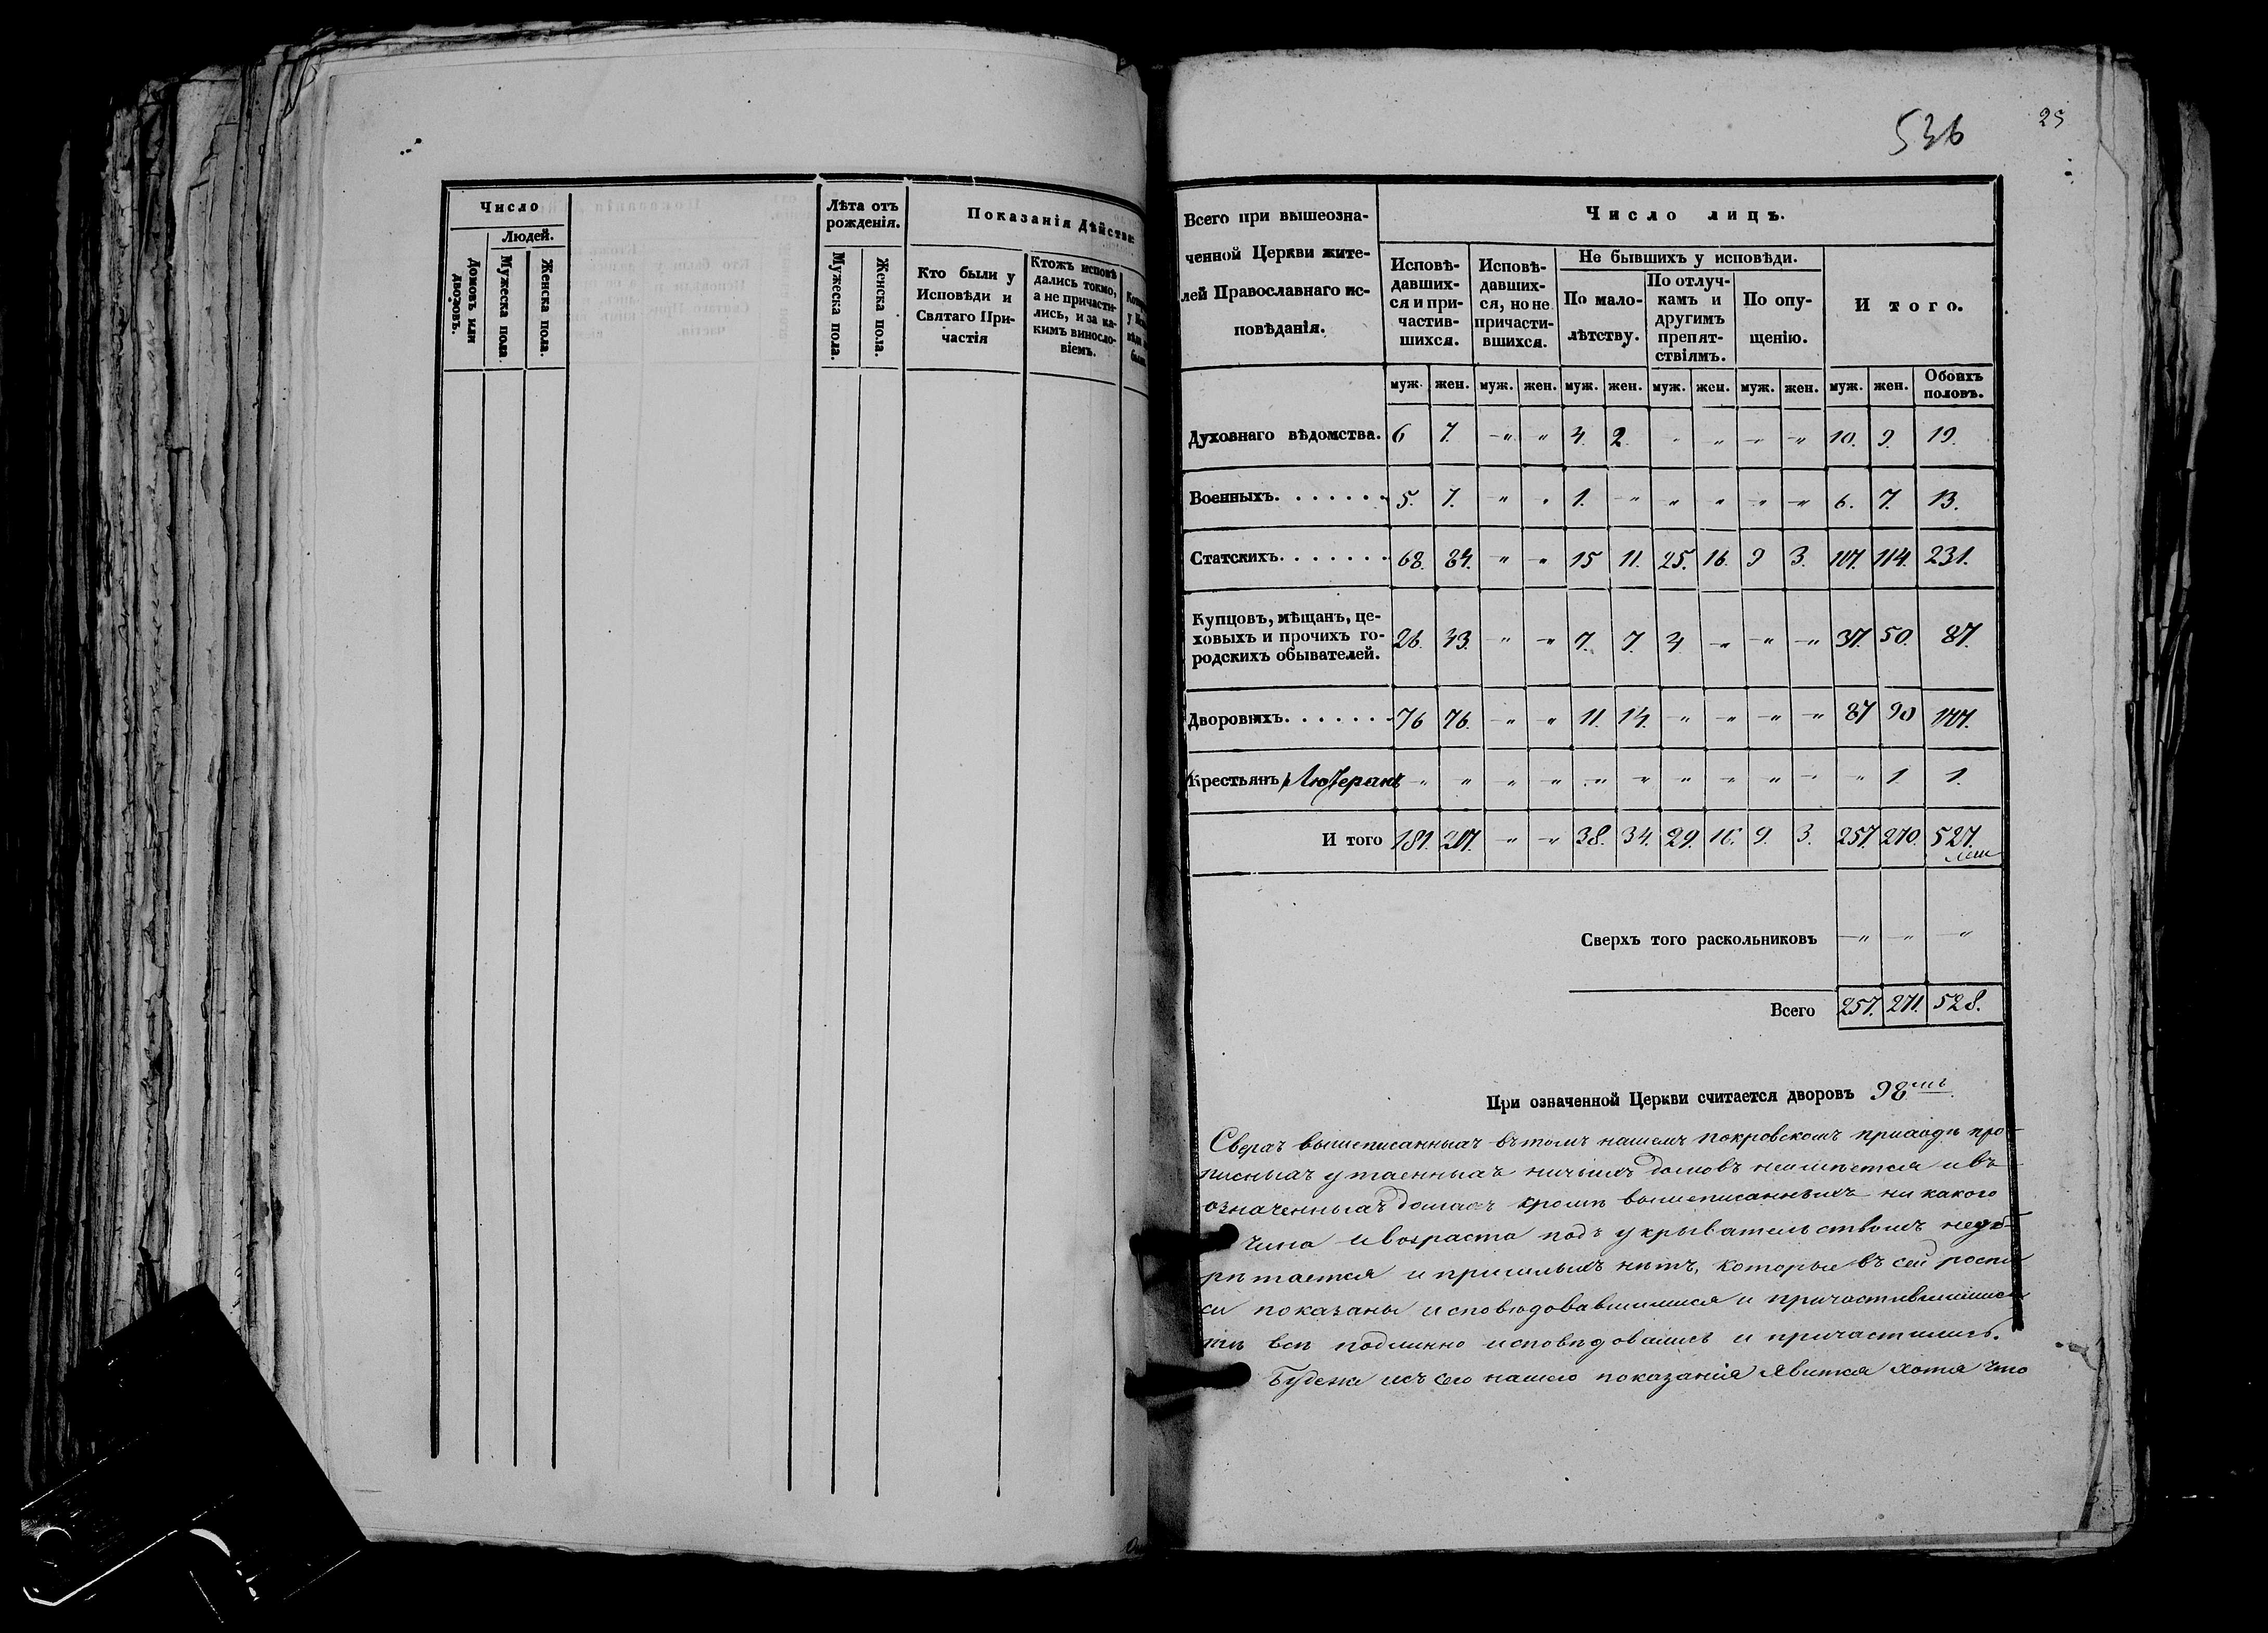 Число
Людей.
Домовъ или дворовъ.
Мужеска пола.
Женска пола.
Лѣта отъ рожденія.
Мужеска пола.
Женска пола.
Показанія дѣйстве
Кто были у
Исповѣди и
Святаго При-
частія
Ктожъ исповѣ
дались токмо,
а не причасти-
лись, и за ка-
кимъ виносло-
віемъ.
536
25
Всего при вышеозна-
ченной Церкви жите-
лей Православнаго ис-
повѣданія.
Число лицъ.
Исповѣ-
давших-
ся и при-
частив-
шихся.
Исповѣ-
давших-
ся, но не
причасти-
вшихся.
Не бывшихъ у исповѣди.
По мало-
лѣтству.
По отлуч-
камъ и
другимъ
препят-
ствіямъ.
По опу-
щенію.
И того.
муж. жен. муж. жен. муж. жен. муж. жен. муж. жен. муж. жен. Обоихъ половъ.
Духовнаго вѣдомства. 6 7. -"- " 4. 2. " " " " 10. 9. 19.
Военныхъ. . . . . . . 5. 7. " " 1. " " " " " 6. 7. 13.
Статскихъ. . . . . . . 68. 84. " " 15 11. 25. 16. 9 3. 114. 231.
Купцовъ, мѣщанъ, це-
ховыхъ и прочихъ го-
родскихъ обывателей. 26. 43. " " 7. 7. 4. " " " 37. 50. 87.
Дворовыхъ. . . . . . . 76 76. " " 11. 14. " " " " 87 90 177.
Крестьянъ Лютеранъ " " " " " " " " " " " 1 1.
И того 181. 217. " " 38. 34. 29. 16. 9. 3. 257. 270. 527.
Сверхъ того раскольниковъ " " "
Всего 257. 271. 528.
При означенной Церкви считается дворовъ 98
Сверхъ вышеписанныхъ въ томъ нашемъ Покровскомъ приходѣ про-
писныхъ утаенныхъ ничьихъ домовъ неимѣется и въ
означенныхъ домахъ кромѣ вышеписанныхъ никакого
чина и возраста подъ укрывательствомъ необ-
рѣтается и пришлыхъ нѣтъ, которые въ сей роспи
си показаны исповѣдовавшимися и причастившимися
тѣ всѣ подлинно исповѣдовались и причастились.
Будеже исъ сего нашего показанія явится хотя что